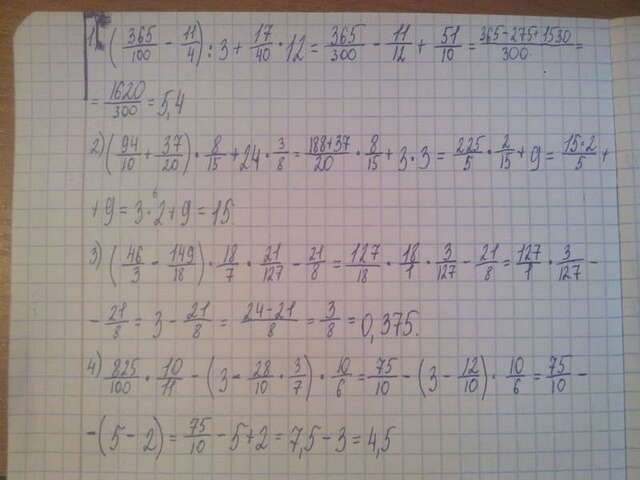 1) (365/100 - 11/4) : 3 + 17/40 · 12 = 365/300 - 11/12 + 51/10 = (365-275+1530)/300 =
= 1620/300 = 5,4
2) (94/10 + 37/20) · 8/15 + 24 · 3/8 = (188+37)/20 · 8/15 + 3·3 = 225/5 · 2/15 + 9 = (15·2)/5 +
+ 9 = 3·2 + 9 = 15
3) (46/3 - 149/18) · 18/7 · 21/127 - 21/8 = 127/18 · 18/1 · 3/127 - 21/8 = 127/1 · 3/127 -
- 21/8 = 3 - 21/8 = (24-21)/8 = 3/8 = 0,375.
4) 825/100 · 10/11 - (3 - 28/10 · 3/7) · 10/6 = 75/10 - (3 - 12/10) · 10/6 = 75/10 -
- (5 - 2) = 75/10 - 5 + 2 = 7,5 - 3 = 4,5